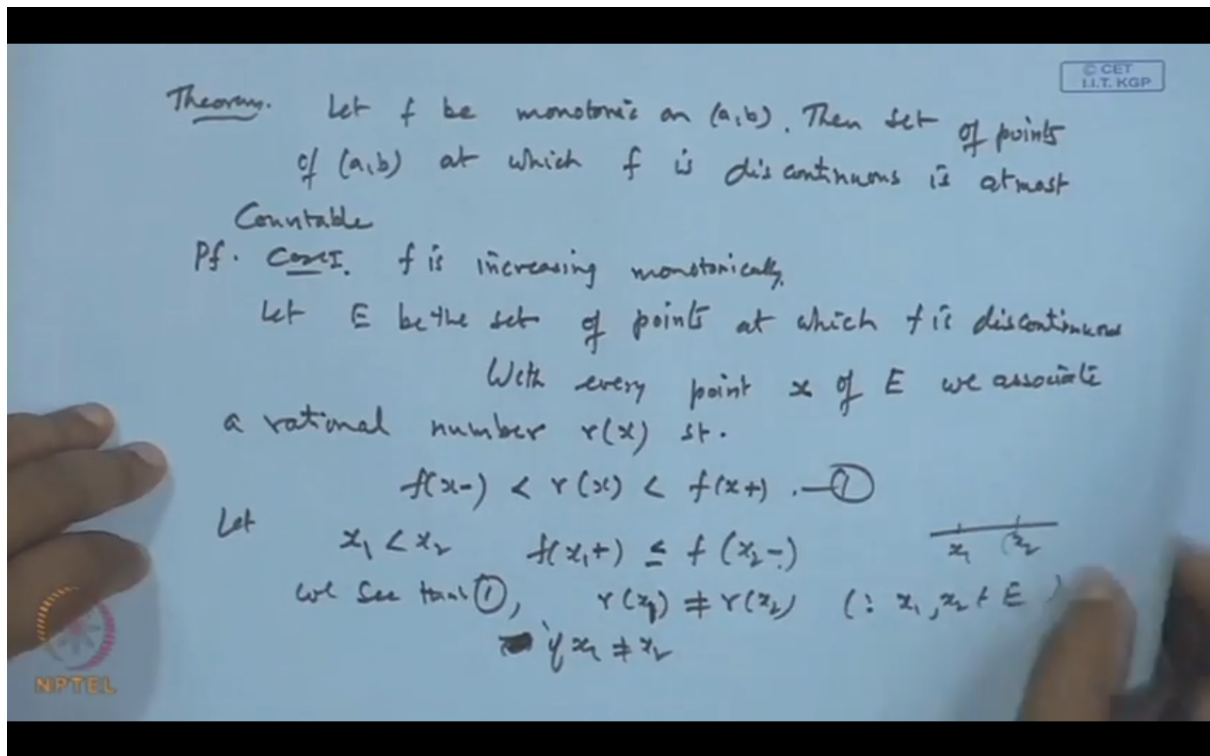 © CET
I.I.T. KGP
Theorem. Let f be monotonic on (a,b). Then set of points
of (a,b) at which f is discontinuous is atmost
Countable
Pf. Case I. f is increasing monotonically.
Let E be the set of points at which f is discontinuous
With every point x of E we associate
a rational number r(x) st.
f(x-) < r(x) < f(x+) . — ①
Let x₁ < x₂ f(x₁+) ≤ f(x₂-)
x₁ x₂
we see that ①, r(x₁) ≠ r(x₂) (: x₁, x₂ ∈ E )
if x₁ ≠ x₂
NPTEL